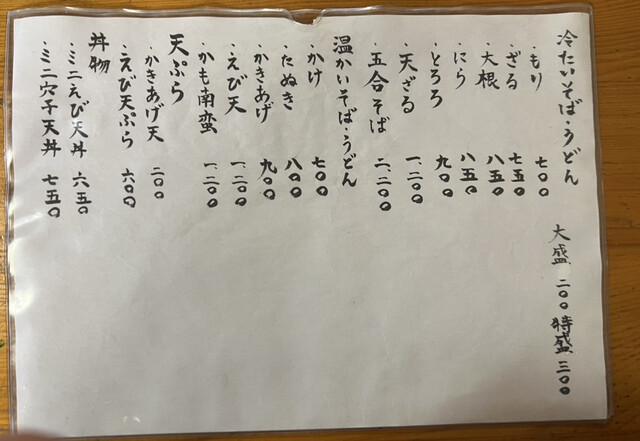 冷たいそば・うどん
・もり 七〇〇
・ざる 七五〇
・大根 八五〇
・にら 八五〇
・とろろ 九〇〇
・天ざる 一、二〇〇
・五合そば 二、二〇〇
大盛 二〇〇 特盛 三〇〇
温かいそば・うどん
・かけ 七〇〇
・たぬき 八〇〇
・かきあげ 九〇〇
・えび天 一、二〇〇
・かも南蛮 一、二〇〇
天ぷら
・かきあげ天 二〇〇
・えび天ぷら 六〇〇
丼物
・ミニえび天丼 六五〇
・ミニ穴子天丼 七五〇